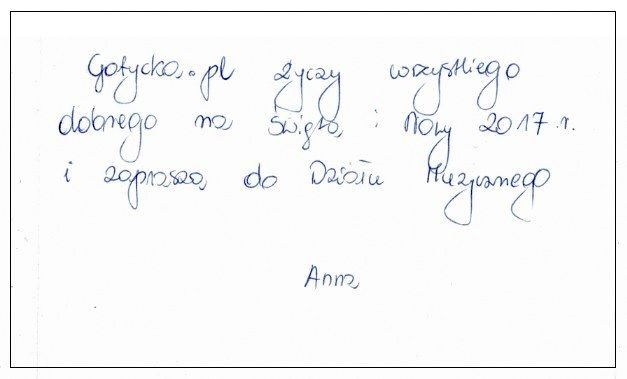 Gotycka.pl życzy wszystkiego
dobrego na Święta i Nowy 2017 r.
i zaprasza do Działu Muzycznego
Anna